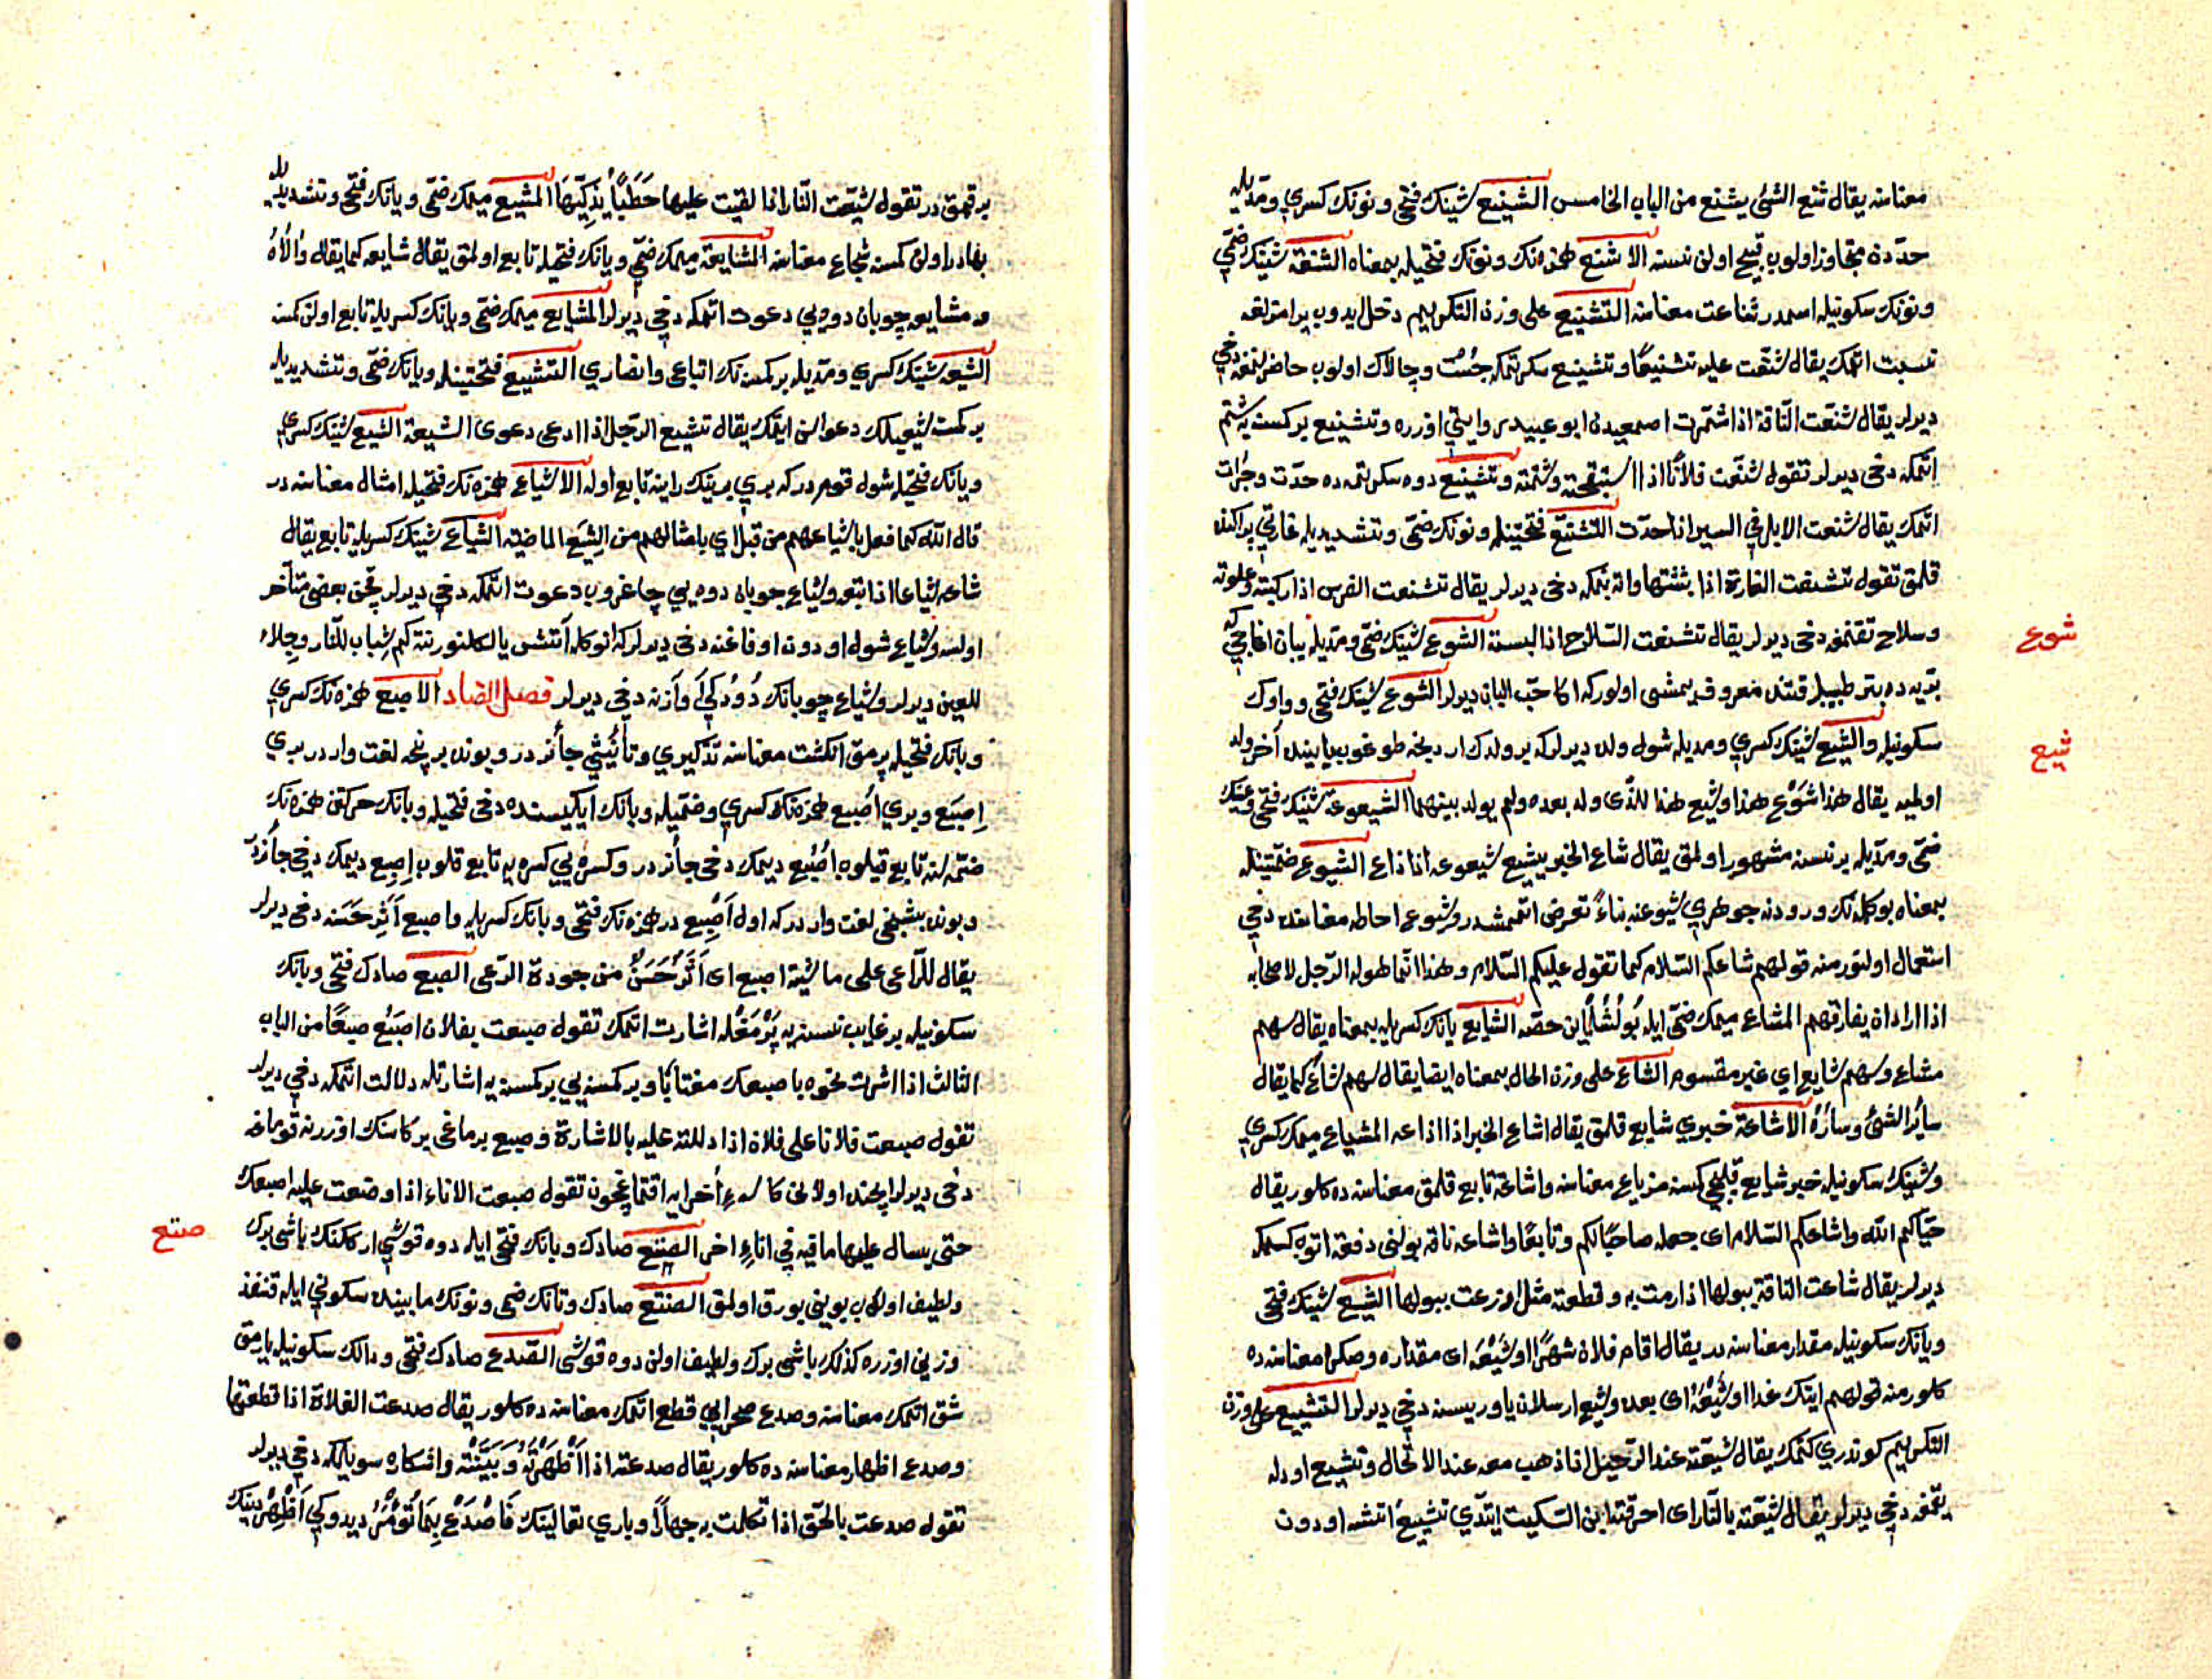 معناسنه يقال شنع الشئ يشنع من الباب الخامس الشنيع شينك فتحى ونونك كسرى ومديله
حددن متجاوز اولوب قبيح اولن نسنه الاشنع همزه نك ونونك فتحيله بمعناه الشنعة شينك ضمى
ونونك سكونيله اسمدر شناعت معناسنه التشنيع على وزن التكريم دخل ايدوب يرامزلغه
نسبت اتمك يقال شنعت عليه تشنيعا وتشنيع سكرتمكه چست وچالاك اولوب حاضرلنمغه دخى
ديرلر يقال شنعت الناقة اذا شمرت اصمعيدن ابو عبيد روايتى اوزره وتشنيع بر كمسنه يه شتم
اتمكه دخى ديرلر تقول شنعت فلانا اذا استقبحته وشتمته وتشنيع دوه سكرتمه ده حدت وجرات
اتمك يقال شنعت الابل فى السير اذا حدت التشنع فتحتينله ونونك ضمى وتشديديله غارتى پراكنده
قلمق تقول تشنعت الغارة اذا بثثتها وات بنمكه دخى ديرلر يقال تشنعت الفرس اذا ركبته وعلوته
وسلاح تقنمغه دخى ديرلر يقال تشنعت السلاح اذا لبسته الشوع شينك ضمى ومديله بان اغاجى كه
بريه ده بتر طبيبلر قتنده معروف يمشى اولور كه اكا حب البان ديرلر الشوع شينك فتحى وواوك
شوع
سكونيله والشيع شينك كسرى ومديله شول ولدن ديرلر كه بر ولدك اردنجه طوغوب يابينده آخر ولد
شيع
اولميه يقال هذا شوع هذا وشيع هذا للذى ولد بعده ولم يولد بينهما الشيعوعة شينك فتحى وعينك
ضمى ومديله بر نسنه مشهور اولمق يقال شاع الخبر يشيع شيعوعة اذا ذاع الشيوع ضمتينله
بمعناه بو كلمه نك ورودنه جوهرى شيوعنه بناء تعرض اتممشدر وشيوع احاطه معناسنده دخى
استعمال اولنور منه قولهم شاعكم السلام كما تقول عليكم السلام وهذا انما يقوله الرجل لاصحابه
اذا اراد ان يفارقهم المشاع ميمك ضمى ايله بولشلماين حصه الشايع يانك كسريله بمعناه يقال سهم
مشاع وسهم شايع اى غير مقسوم الشاع على وزن الحال بمعناه ايضا يقال سهم شاع كما يقال
سائر الشئ وساره الاشاعة خبرى شايع قلمق يقال اشاع الخبر اذا اذاعه المشياع ميمك كسرى
وشينك سكونيله خبر شايع قيلجى كمسنه مذياع معناسنه واشاعة تابع قلمق معناسنه ده كلور يقال
حياكم الله واشاعكم السلام اى جعله صاحبا لكم وتابعا واشاعه ناقه بولنى دفعه اتوب كسمكه
ديرلر يقال شاعت الناقة ببولها اذا رمت به وقطعته مثل اوزعت ببولها الشيع شينك فتحى
ويانك سكونيله مقدار معناسنه در يقال اقام فلان شهرا او شيعه اى مقداره وصكرا معناسنه ده
كلور منه قولهم اتيك غدا او شيعه اى بعده وشيع ارسلان ياوريسنه دخى ديرلر التشييع على وزن
التكريم كوندرى كتمك يقال شيعته عند الرحيل اذا ذهب معه عند الارتحال وتشييع اودله
يقمغه دخى ديرلر يقال شيعته بالنار اى احرقته ابن السكيت ايتدى تشييع اتشه اودون
بر قمق در تقول شيعت النار اذا لقيت عليها حطبا يذكيها المشيع ميمك ضمى ويانك فتحى وتشديديله
بهادر اولن كمسنه شجاع معناسنه المشايعة ميمك ضمى ويانك فتحيله تابع اولمق يقال شايعه كما يقال والاه
ومشايعه چوبان دوه يى دعوت اتمكه دخى ديرلر المشايع ميمك ضمى ويانك كسريله تابع اولن كمسنه
الشيعه شينك كسرى ومديله بر كمسنه نك اتباعى وانصارى التشيع فتحتينله ويانك ضمى وتشديديله
بر كمسنه شيعيلك دعواسن ايتمك يقال تشيع الرجل اذا ادعى دعوى الشيعة الشيع شينك كسرى
ويانك فتحيله شول قومدر كه برى برينك راينه تابع اوله الاشياع همزه نك فتحيله امثال معناسنه در
قال الله كما فعل باشياعهم من قبل اى بامثالهم من الشيع الماضية الشياع شينك كسريله تابع يقال
شاعه شياعا اذا تبعه وشياع چوبان دوه يى چاغروب دعوت اتمكه دخى ديرلر قچن بعضى متأخر
اولسه وشياع شول اودون اوفاغنه دخى ديرلر كه انوكله آتش يالكلنور نته كم شباب للنار وجلاء
للعين ديرلر وشياع چوبانك دودكى وآزنه دخى ديرلر فصل الصاد الاصبع همزه نك كسرى
وبانك فتحيله پرمق انكشت معناسنه تذكيرى وتأنيثى جائز در وبونده بر نيچه لغت واردر برى
اصبع وبرى اصبع همزه نك كسرى وضميله وبانك ايكيسنده دخى فتحيله وبانك حركتن همزه نك
ضمه سنه تابع قيلوب اصبع ديمك دخى جائز در وكسره يى كسره يه تابع قلوب اصبع ديمك دخى جائزدر
وبونده بشنجى لغت واردر كه اول اصبع در همزه نك فتحى وبانك كسريله واصبع اثر حسنه دخى ديرلر
يقال للراعى على ماشيته اصبع اى اثر حسن من جودة الرعى الصبع صادك فتحى وبانك
سكونيله بر غايب نسنه يه پرمغله اشارت اتمك تقول صبعت بفلان اصبع صبعا من الباب
الثالث اذا اشرت نحوه باصبعك مغتابا وبر كمسنه يى بر كمسنه يه اشارتله دلالت اتمكه دخى ديرلر
تقول صبعت فلانا على فلان اذا دللته عليه بالاشارة وصبع برماغى بر كاسنك اوزرينه قومغه
دخى ديرلر ايچنده اولانى كاسه ء اخرايه اقتماغچون تقول صبعت الاناء اذا وضعت عليه اصبعك
حتى يسال عليها ما فيه فى اناء اخر الصتع صادك وبانك فتحى ايله دوه قوشى اركنك باشى يوك
صتع
ولطيف اولوب بوينى يورق اولمق الصنتع صادك وتانك ضمى ونونك مابينده سكونى ايله قنفذ
وزنى اوزره كذلك باشى يوك ولطيف اولن دوه قوشى الصدع صادك فتحى ودالك سكونيله يارمق
شق اتمك معناسنه وصدع صحرايى قطع اتمك معناسنه ده كلور يقال صدعت الفلاة اذا قطعتها
وصدع اظهار معناسنه ده كلور يقال صدعته اذا اظهرته وبينته واشكاره سويلمكه دخى ديرلر
تقول صدعت بالحق اذا تكلمت به جهارا وبارى تعالينك فاصدع بما تؤمر ديدوكى اظهر دينك